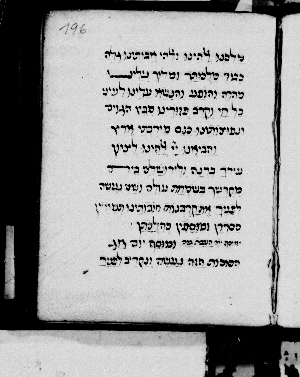 196
מלכנו אלהינו ואלהי אבותינו גלה
כבוד מלכותך ומלוך עלינו
מהרה והופע והנשא עלינו לעיני
כל חי וקרב פזורינו מבין הגוים
ונפוצותינו כנס מירכתי ארץ
והביאנו יי אלהינו לציון
עירך ברנה ולירושלם בית
מקדשך בשמחת עולם ושם נעשה
לפניך את קרבנות חובותינו תמידין
כסדרן ומוספין כהלכתן
ומוסף יום חג
הסוכות הזה נעשה ונקריב לפניך